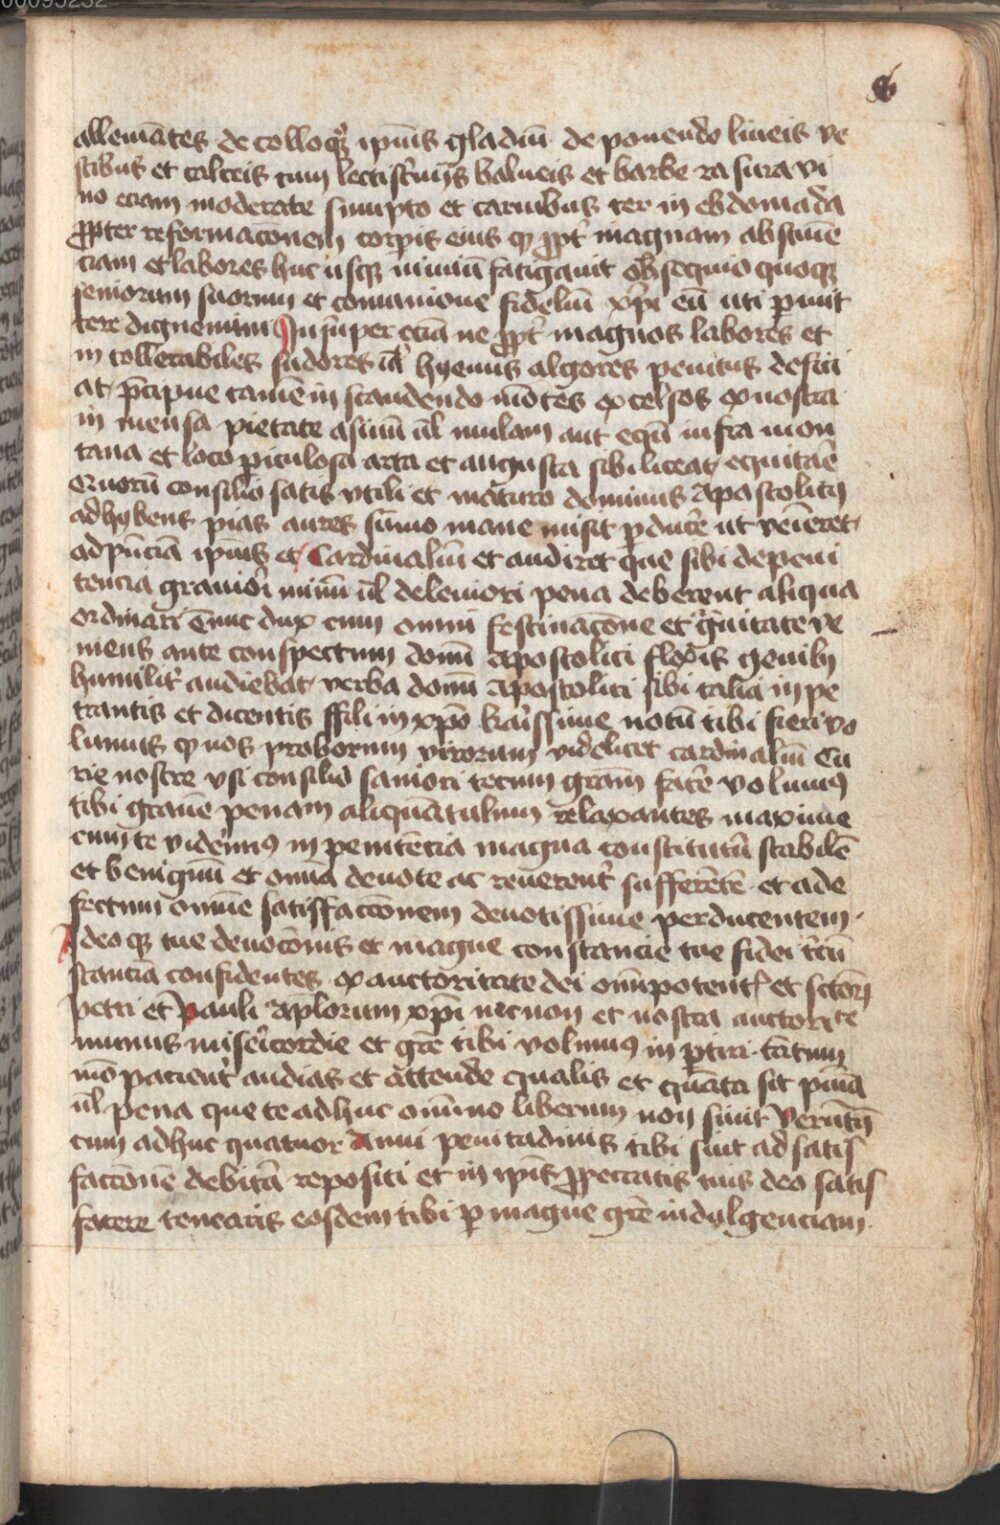 00095232
6
allemātes de colloqƷ ipīus gladiū de ponendo lineis ve
stibus et calceis cum lectisternijs balneis et barbe rasura vi
no eciam moderate sumpto et carnibus ter in ebdomada
ꝓpter reformacōnem corpis eius qꝫ ꝓpt̕ magnam abstine
ciam et labores huc usqꝫ nimiū fatigauit obsequio quoqꝫ
seniorum suorum et comunione fidelium xp̄i eū uti pmit
tere dignemini Insuper eciā ne ꝓpt̕ magnos labores et
in tollerabiles sudores ūl hyemis algores penitus defici
at, p̄cipue tamē in scandendo mōtes excelsos ex nostra
in mensa pietate asinū ūl mulam aut equū in fra mon
tana et loco piculosa arta et angusta sibi liceat equitare
Quorū consilio satis vtili et maturo dominus apostolicꝯ
adhybens pias aures sūmo mane misit ꝓ duce ut veīret
ad pn̄ciā ipīus et Cardinaliū et audiret que sibi de peni
tencia graviori nimiū ūl de leniori pena deberent aliqua
ordinari Tunc dux cum omni festinacōne et gͣuitate ve
niens ante conspectum domī apostolici flexis genibꝯ
humilit̕ audiebat verba domī apostolici sibi talia inpe
trantis et dicentis ffili in xp̄o kārissime notū tibi fieri vo
lumus qꝫ nos proborum virorum videlicet cardinaliū Cu
rie nostre vsi consilio saniori tecum grām facere volumꝯ
tibi grauē penam aliquātulum relaxantes maxime
cum te videmꝯ in penitēcia magna constitutū stabilē
et benignū et omnia deuote ac reuerent̕ sufferētē et ad e
fectum omnē satisffaccōnem deuotissime perducentem.
Ideo qꝫ tue deuocōnis et magne constancie tue fidei circū
stancia confidentes ex auctoritate dei om̄ipotent̕ et sctorꝝ
petri et Pauli ap̄lorum xp̄i necnon et nostra auctorite
munus misericordie et grē tibi volumꝯ in ptiri tantum
mō pacient̕ audias et attende qualis et quāta sit pn̄ia
ūl pena que te adhuc omnīno liberum non sinit Verūtn̄
cum adhuc quatuor Anni penitudinis tibi sint ad satis
faccōnē debitā repositi et in ipīs ꝓ peccatis tuis deo satis
facere tenearis eosdem tibi ꝑ magne grē indulgenciam.